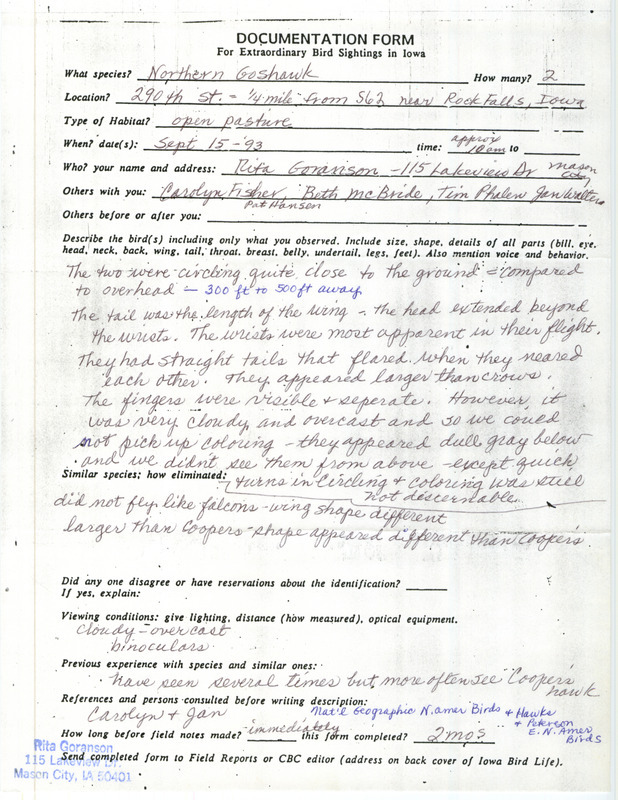 DOCUMENTATION FORM
For Extraordinary Bird Sightings in Iowa
What species? Northern Goshawk How many? 2
Location? 290th St. - 1/4 mile from S62 near Rock Falls, Iowa
Type of Habitat? open pasture
When? date(s): Sept 15-93 time: approx 10am to
Who? your name and address: Rita Goranson - 115 Lakeview Dr Mason City
Others with you: Carolyn Fisher, Beth McBride, Tim Phalen Jan Walters
Pat Hansen
Others before or after you:
Describe the bird(s) including only what you observed. Include size, shape, details of all parts (bill, eye,
head, neck, back, wing, tail, throat, breast, belly, undertail, legs, feet). Also mention voice and behavior.
The two were circling quite close to the ground - compared
to overhead - 300 ft to 500 ft away
the tail was the length of the wing - the head extended beyond
the wrists. The wrists were most apparent in their flight.
They had straight tails that flared when they neared
each other. They appeared larger than crows.
The fingers were visible & seperate. However, it
was very cloudy and overcast and so we could
not pick up coloring - they appeared dull gray below
and we didn't see them from above - except quick
Similar species; how eliminated: turns in circling & coloring was still
not discernable.
did not fly like falcons - wing shape different
larger than Coopers - shape appeared different than Coopers.
Did any one disagree or have reservations about the identification?
If yes, explain:
Viewing conditions: give lighting, distance (how measured), optical equipment.
cloudy - overcast
binoculars
Previous experience with species and similar ones:
have seen several times but more often see Coopers
hawk
References and persons consulted before writing description:
Carolyn & Jan Nat'l Geographic N. Amer Birds & Hawks
& Peterson
E. N. Amer
Birds
How long before field notes made? immediately this form completed? 2 mos
Send completed form to Field Reports or CBC editor (address on back cover of Iowa Bird Life).
Rita Goranson
115 Lakeview Dr.
Mason City, IA 50401